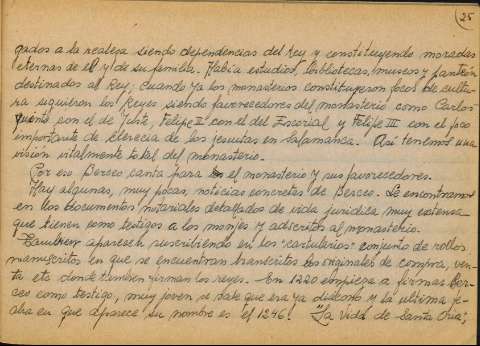 25
gados a la realeza siendo dependencias del Rey y constituyendo moradas
eternas de el y de su familia. Había estudios, bibliotecas, museos y panteón
destinados al Rey; Cuando ya los monasterios constituyeron focos de cultu-
ra siguieron los Reyes siendo favorecedores del monasterio como Carlos
quinto con el de Yuste, Felipe II con el del Escorial y Felipe III con el foco
importante de clerecia de los jesuitas en Salamanca. Así tenemos una
visión vitalmente total del monasterio.
Por eso Berceo canta para el monasterio y sus favorecedores.
Hay algunas, muy pocas, noticias concretas de Berceo. Le encontramos
en los documentos notariales detallados de vida juridica muy extensa
que tienen como testigos a los monjes y adscritos al monasterio.
Tambien aparece suscribiendo en los "cartularios" conjunto de rollos
manuscritos en que se encuentran transcritos los originales de compra, ven-
ta etc donde tambien firman los reyes. En 1220 empieza a firmar Ber-
ceo como testigo, muy joven, se sabe que era ya diácono y la ultima fe-
cha en que aparece su nombre es el 1246. "La Vida de Santa Oria",